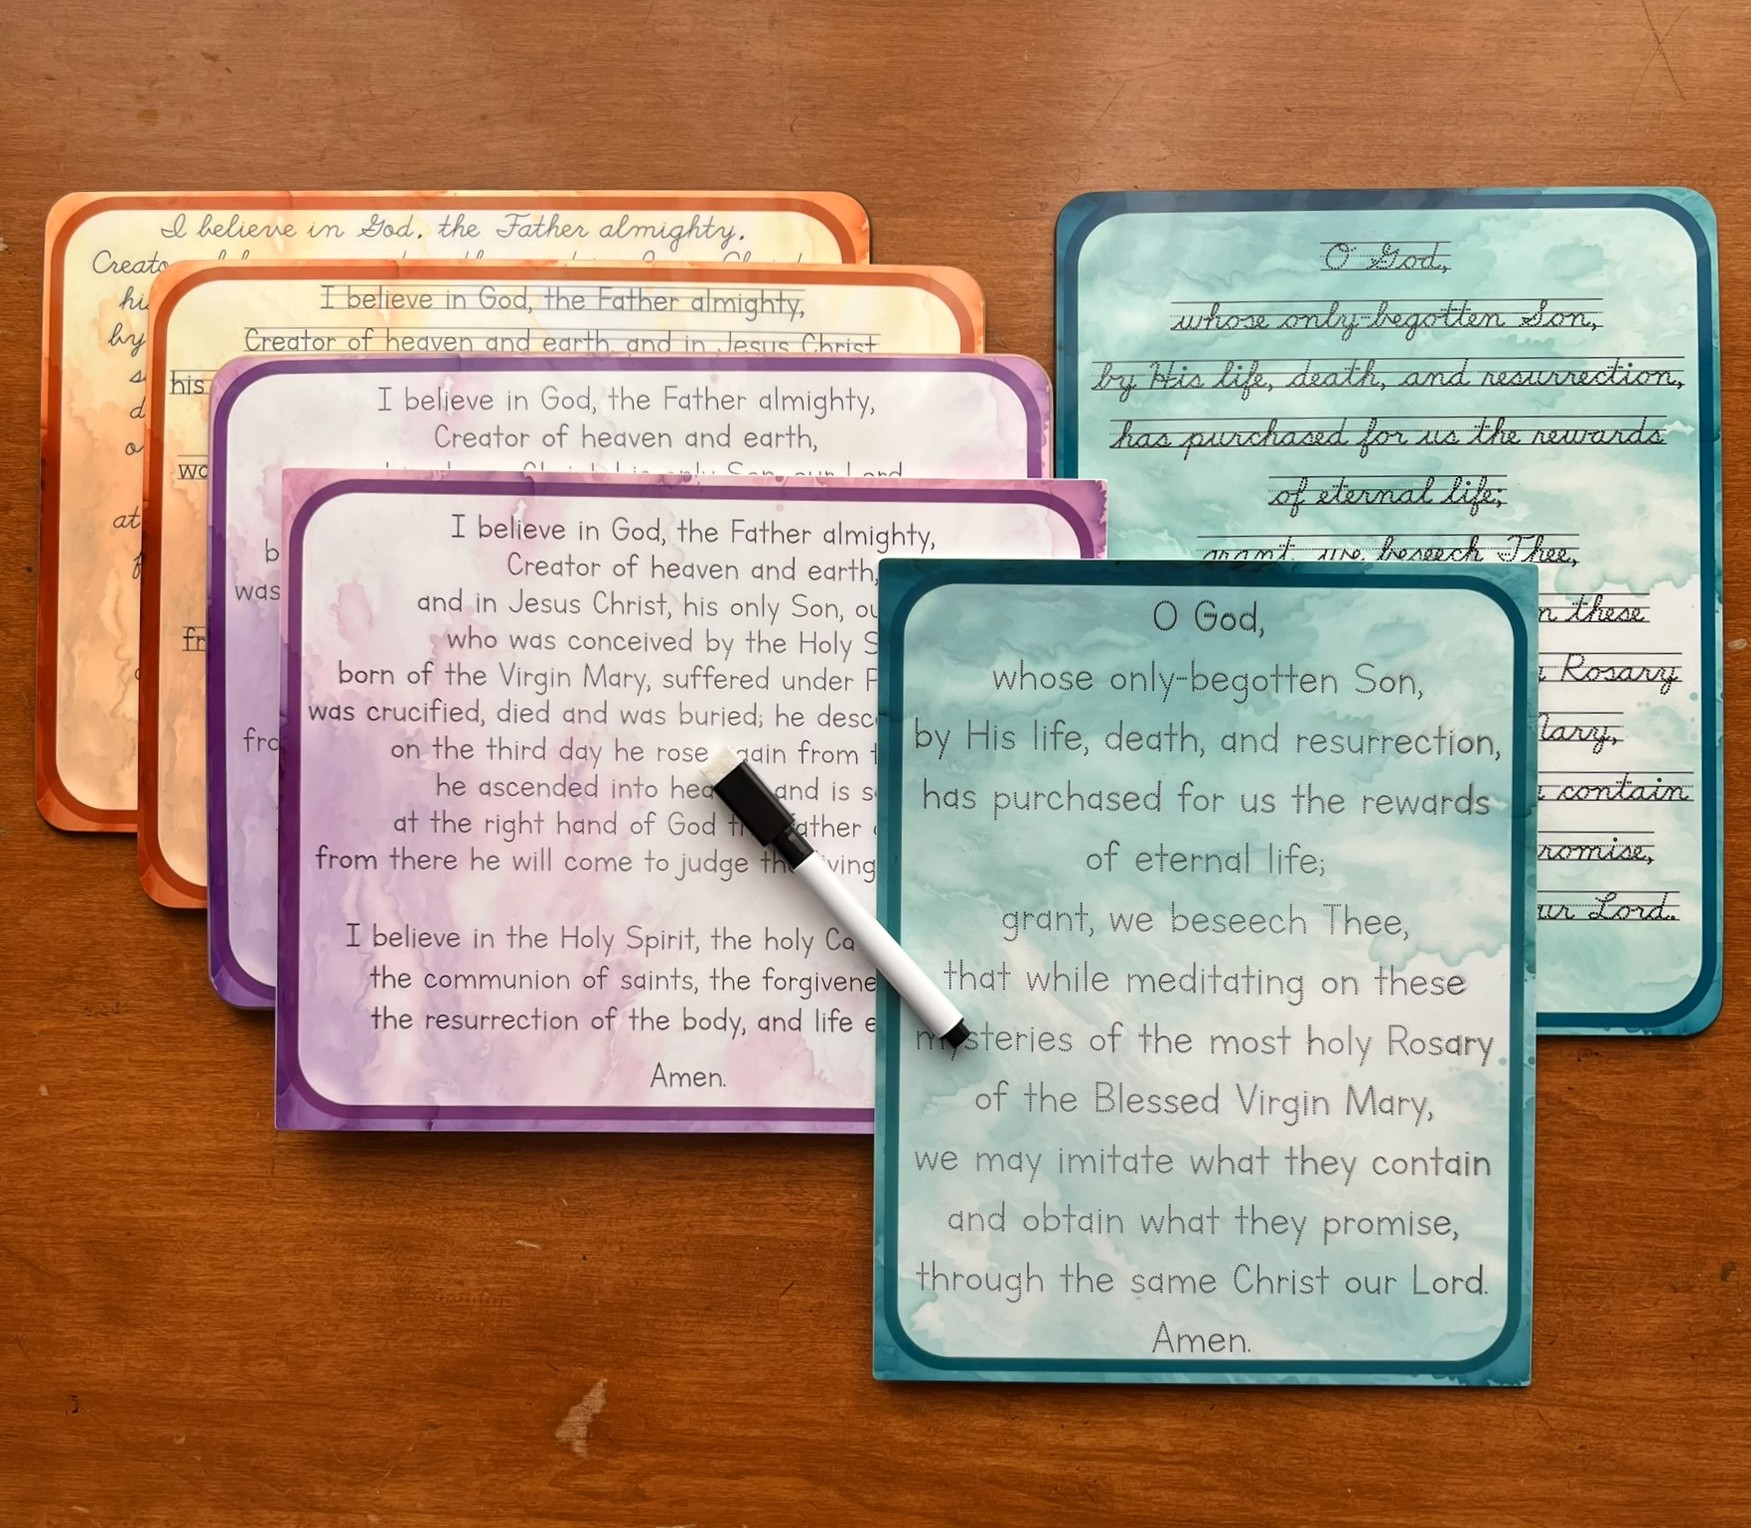 I believe in God, the Father almighty,
his
by
at
I believe in God, the Father almighty,
Creator of heaven and earth, and in Jesus Christ
his
I believe in God, the Father almighty,
Creator of heaven and earth,
was
I believe in God, the Father almighty,
Creator of heaven and earth,
and in Jesus Christ, his only Son,
who was conceived by the Holy
born of the Virgin Mary, suffered under
was crucified, died and was buried; he
on the third day he rose from
he ascended into and is
at the right hand of God
from there he will come to judge
I believe in the Holy Spirit, the holy
the communion of saints, the
the resurrection of the body, and life
Amen.
O God,
whose only-begotten Son,
by His life, death, and resurrection,
has purchased for us the rewards
of eternal life;
grant, we beseech Thee,
these
Rosary
contain
Lord.
O God,
whose only-begotten Son,
by His life, death, and resurrection,
has purchased for us the rewards
of eternal life;
grant, we beseech Thee,
that while meditating on these
mysteries of the most holy Rosary
of the Blessed Virgin Mary,
we may imitate what they contain
and obtain what they promise,
through the same Christ our Lord.
Amen.